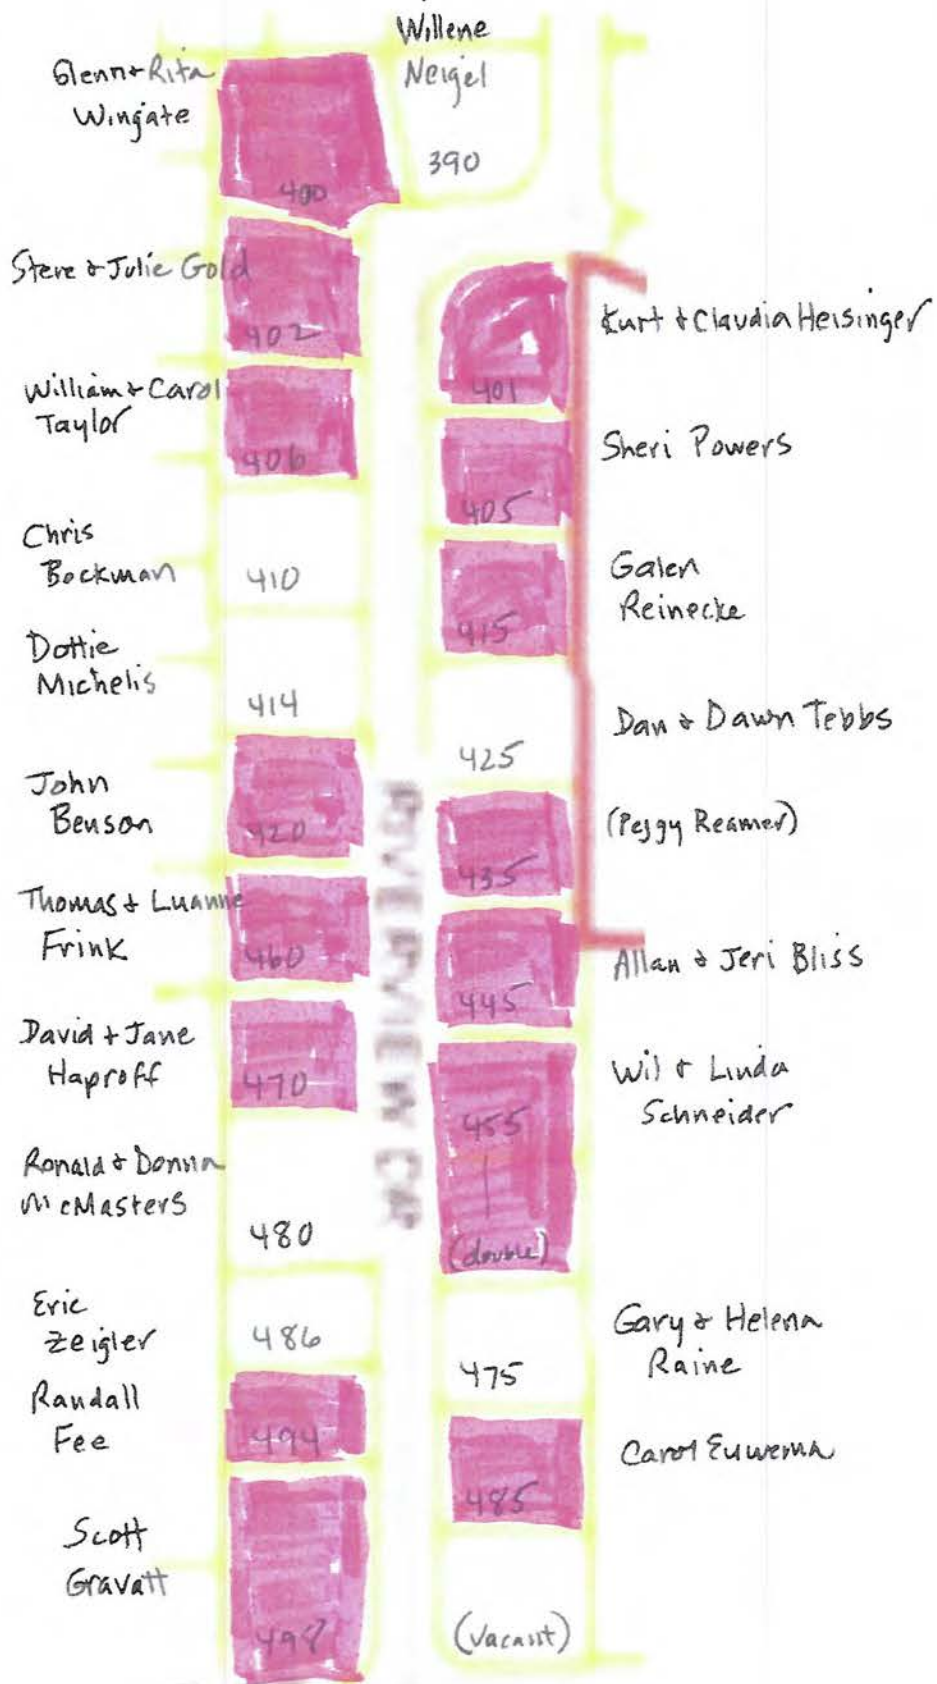 Willene
Neigel
390
Glenn + Rita
Wingate
400
Steve & Julie Gold
402
William + Carol
Taylor
406
Chris
Bockman
410
Dottie
Michelis
414
John
Benson
420
Thomas & Luanne
Frink
460
David + Jane
Haproff
470
Ronald & Donna
McMasters
480
Eric
Zeigler
486
Randall
Fee
494
Scott
Gravatt
498
Kurt & Claudia Heisinger
401
Sheri Powers
405
Galen
Reinecke
415
Dan & Dawn Tebbs
425
(Peggy Reamer)
435
Allan & Jeri Bliss
445
Wil & Linda
Schneider
455
(double)
Gary & Helena
Raine
475
Carol Euwema
485
(vacant)